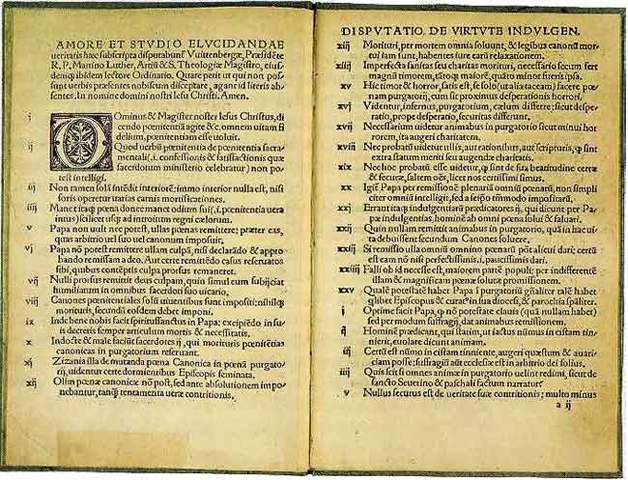 AMORE ET STVDIO ELVCIDANDAE
ueritatis hæc subscripta disputabunt Vuittenbergæ, Præsidēte
R. P. Martino Luther, Artiū & S. Theologiæ Magistro, eius
demq; ibidem lectore Ordinario. Quare petit ut qui non pos
sunt uerbis præsentes nobiscum disceptare, agant id literis ab
sentes. In nomine domini nostri Iesu Christi. Amen.
i DOminus & Magister noster Iesus Christus, di
cendo pœnitentiā agite &c. omnem uitam fi
delium, pœnitentiam esse uoluit.
ij Quod uerbū pœnitentia de pœnitentia sacra
mentali (.i. confessionis & satisfactionis quæ
sacerdotum ministerio celebratur) non po
test intelligi.
iij Non tamen solā intēdit interiorē: immo interior nulla est, nisi
foris operetur uarias carnis mortificationes.
iiij Manet itaq; pœna donec manet odium sui (.i. pœnitentia uera
intus) scilicet usq; ad introitum regni cælorum.
v Papa non uult nec potest, ullas pœnas remittere: præter eas,
quas arbitrio uel suo uel canonum imposuit.
vj Papa nō potest remittere ullam culpā, nisi declarādo & appro
bando remissam a deo, Aut certe remittēdo casus reseruatos
sibi, quibus cōtemptis culpa prorsus remaneret.
vij Nulli prorsus remittit deus culpam, quin simul eum subijciat
humiliatum in omnibus sacerdoti suo uicario.
viij Canones pœnitentiales solū uiuentibus sunt impositi: nihilq;
morituris, secundū eosdem debet imponi.
ix Inde bene nobis facit spiritussanctus in Papa: excipiēdo in su
is decretis semper articulum mortis & necessitatis.
x Indocte & male faciūt sacerdotes ij, qui morituris pœnitētias
canonicas in purgatorium reseruant.
xj Zizania illa de mutanda pœna Canonica in pœnā purgato
rij, uidentur certe dormientibus Episcopis seminata.
xij Olim pœnæ canonicæ nō post, sed ante absolutionem impo
nebantur, tanq̄ tentamenta ueræ contritionis.
DISPVTATIO DE VIRTVTE INDVLGEN.
xiij Morituri, per mortem omnia soluunt, & legibus canonū mor
tui iam sunt, habentes iure earū relaxationem.
xiiij Imperfecta sanitas seu charitas morituri, necessario secum fert
magnū timorem, tātoq; maiorē, quāto minor fuerit ipsa.
xv Hic timor & horror, satis est, se solo (ut alia taceam) facere pœ
nam purgatorij, cum sit proximus desperationis horrori.
xvj Videntur, infernus, purgatorium, cælum differre: sicut despera
tio, prope desperatio, securitas differunt.
xvij Necessarium uidetur animabus in purgatorio sicut minui hor
rorem, ita augeri charitatem.
xviij Nec probatū uidetur ullis, aut rationibus, aut scripturis, q̄ sint
extra statum meriti seu augendæ charitatis.
xix Nec hoc probatū esse uidetur, q̄ sint de sua beatitudine certæ
& securæ, saltem oēs, licet nos certissimi simus.
xx Igit̄ Papa per remissionē plenariā omniū pœnarū, non simpli
citer omniū intelligit, sed a seipso tm̄modo impositarū.
xxj Errant itaq; indulgentiarū prædicatores ij, qui dicunt per Pa
pæ indulgentias, hominē ab omni pœna solui & saluari.
xxij Quin nullam remittit animabus in purgatorio, quā in hac ui
ta debuissent secundum Canones soluere.
xxiij Si remissio ulla omniū omnino pœnarū pōt alicui dari; certū
est eam nō nisi perfectissimis, i. paucissimis dari.
xxiiij Falli ob id necesse est, maiorem partē populi; per indifferentē
illam & magnificam pœnæ solutæ promissionem.
xxv Qualē potestatē habet Papa ī purgatoriū gn̄aliter talē habet
q̄libet Episcopus & curatus in sua diocesi, & parochia sp̄aliter.
i Optime facit Papa, q̄ nō potestate clauis (quā nullam habet)
sed per modum suffragij, dat animabus remissionem.
ij Hominē prædicant, qui statim, ut iactus nūmus in cistam tin
nierit, euolare dicunt animam.
iij Certū est nūmo in cistam tinniente, augeri quæstum & auari
ciam posse; suffragiū aūt ecclesiæ est in arbitrio dei solius.
iiij Quis scit si omnes animæ in purgatorio uelint redimi, sicut de
sancto Seuerino & paschali factum narratur.
v Nullus securus est de ueritate suæ contritionis; multo minus
a ij